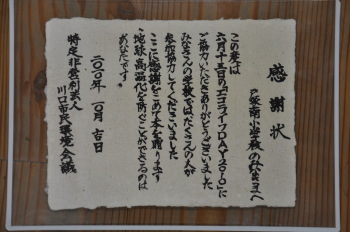 感謝状
戸塚南小学校のみなさまへ
この度は
六月十三日の「エコライフDAY2010」に
ご協力いただきありがとうございました
みなさんの学校ではたくさんの人が
参加協力してくださいました
ここに感謝をこめて本を贈ります
地球高温化を防ぐことができるのは
あなたです。
二〇一〇年 一〇月 吉日
特定非営利法人
川口市民環境会議